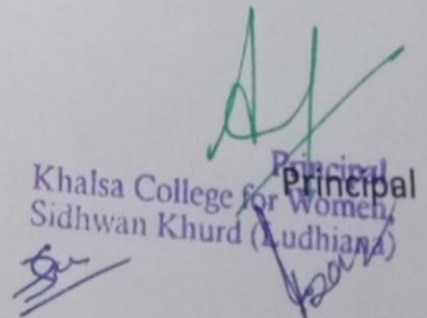 Principal
Principal
Khalsa College for Women,
Sidhwan Khurd (Ludhiana)